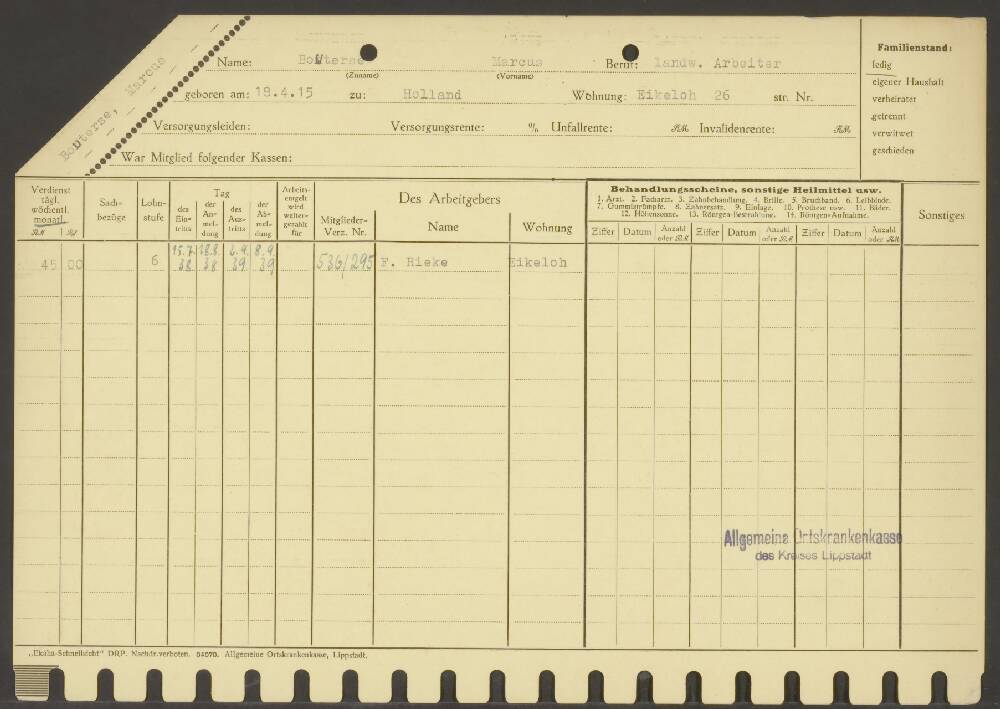 Bouterse, Marcus
Name: Bouterse Marcus Beruf: landw. Arbeiter
(Zuname) (Vorname)
geboren am: 18.4.15 zu: Holland Wohnung: Eikeloh 26 str. Nr.
Versorgungsleiden: Versorgungsrente: % Unfallrente: RM. Invalidenrente: RM.
War Mitglied folgender Kassen:
Familienstand:
ledig
eigener Haushalt
verheiratet
getrennt
verwitwet
geschieden
Verdienst
tägl.
wöchentl.
monatl.
RM Pf
Sach-
bezüge
Lohn-
stufe
Tag
des
Ein-
tritts
der
An-
mel-
dung
des
Aus-
tritts
der
Ab-
mel-
dung
Arbeits-
entgelt
wird
weiter-
gezahlt
für
Mitglieder-
Verz. Nr.
Des Arbeitgebers
Name Wohnung
Behandlungsscheine, sonstige Heilmittel usw.
1. Arzt. 2. Facharzt. 3. Zahnbehandlung. 4. Brille. 5. Bruchband. 6. Leibbinde.
7. Gummistrümpfe. 8. Zahnersatz. 9. Einlage. 10. Prothese usw. 11. Bäder.
12. Höhensonne. 13. Röntgen-Bestrahlung. 14. Röntgen-Aufnahme.
Ziffer Datum Anzahl oder RM Ziffer Datum Anzahl oder RM Ziffer Datum Anzahl oder RM
Sonstiges
45 00 6 15.7. 38 18.8. 38 6.9. 39 8.9. 39 536/295 F. Rieke Eikeloh
Allgemeine Ortskrankenkasse
des Kreises Lippstadt
DRP. Nachdr. verboten. 54070. Allgemeine Ortskrankenkasse, Lippstadt.